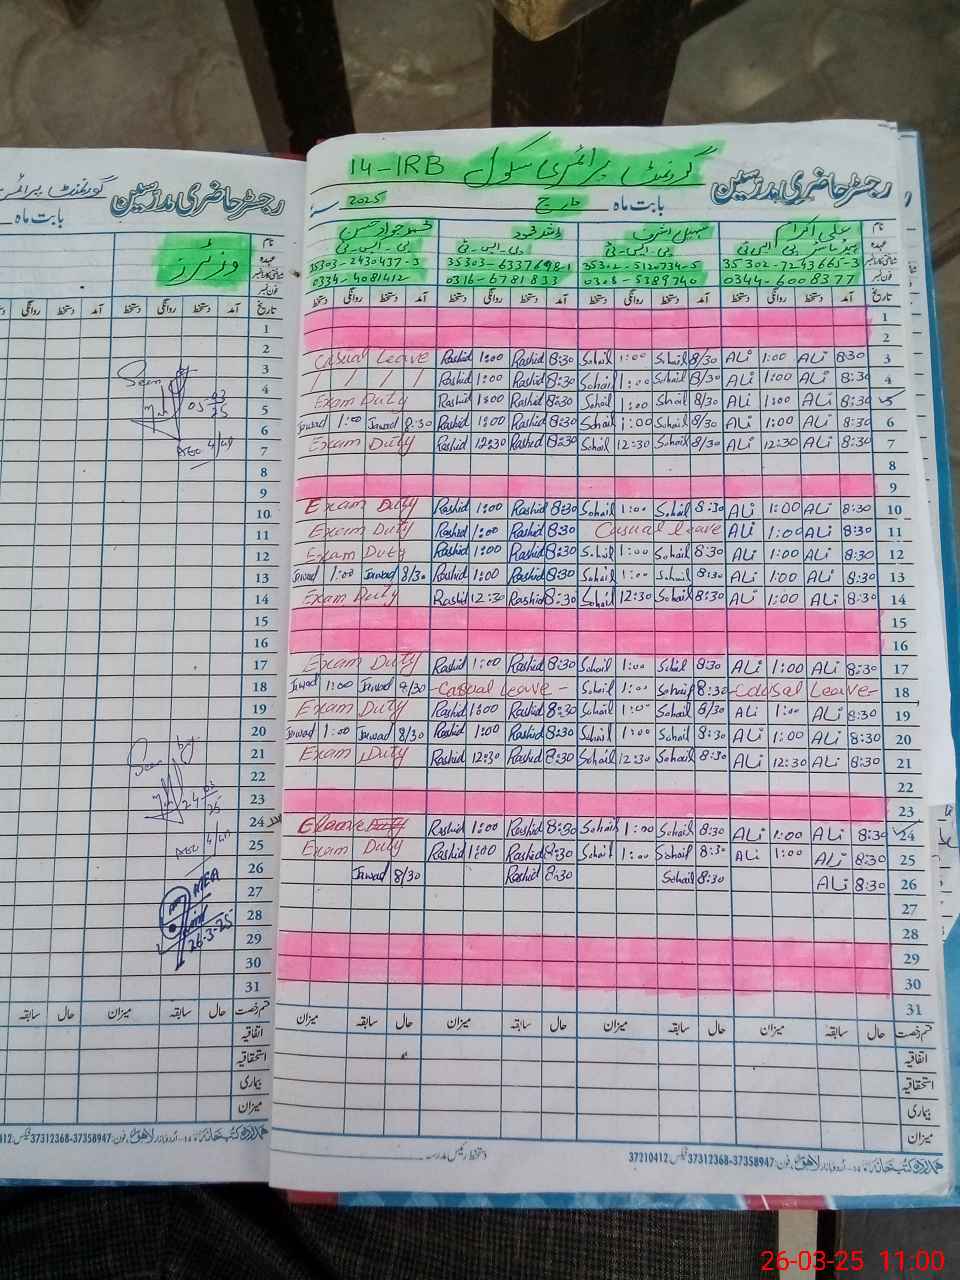 گورنمنٹ پرائمری سکول 14-1RB
رجسٹر حاضری مدرسین
بابت ماہ مارچ 2025 سنہ
نام علی اکرم سہیل اشرف راشد محمود محمد جواد حسن
عہدہ ہیڈ ماسٹر پی ایس ٹی پی-ایس-ٹی پی-ایس-ٹی پی-ایس-ٹی
35303-2430437-3 35303-6337698-1 35302-5120734-5 35302-7243665-3
فون نمبر 0334-4081412 0316-6781833 0305-5389740 0344-6008377
تاریخ آمد دستخط روانگی دستخط آمد دستخط روانگی دستخط آمد دستخط روانگی دستخط آمد دستخط روانگی دستخط
1
2
Casual Leave Rashid 1:00 Rashid 8:30 Sohail 1:00 Sohail 8/30 ALi 1:00 ALi 8:30 3
/ / / / Rashid 1:00 Rashid 8:30 Sohail 1:00 Sohail 8/30 ALi 1:00 ALi 8:30 4
Exam Duty Rashid 1:00 Rashid 8:30 Sohail 1:00 Sohail 8/30 ALi 1:00 ALi 8:30 5
Jawad 1:00 Jawad 8:30 Rashid 1:00 Rashid 8:30 Sohail 1:00 Sohail 8/30 ALi 1:00 ALi 8:30 6
Exam Duty Rashid 12:30 Rashid 8:30 Sohail 12:30 Sohail 8/30 ALi 12:30 ALi 8:30 7
8
9
Exam Duty Rashid 1:00 Rashid 8:30 Sohail 1:00 Sohail 8:30 ALi 1:00 ALi 8:30 10
Exam Duty Rashid 1:00 Rashid 8:30 Casual leave ALi 1:00 ALi 8:30 11
Exam Duty Rashid 1:00 Rashid 8:30 Sohail 1:00 Sohail 8:30 ALi 1:00 ALi 8:30 12
Jawad 1:00 Jawad 8/30 Rashid 1:00 Rashid 8:30 Sohail 1:00 Sohail 8:30 ALi 1:00 ALi 8:30 13
Exam Duty Rashid 12:30 Rashid 8:30 Sohail 12:30 Sohail 8:30 ALi 1:00 ALi 8:30 14
15
16
Exam Duty Rashid 1:00 Rashid 8:30 Sohail 1:00 Sohail 8:30 ALi 1:00 ALi 8:30 17
Jawad 1:00 Jawad 8/30 -Casual Leave- Sohail 1:00 Sohail 8:30 -Causal Leave- 18
Exam Duty Rashid 1:00 Rashid 8:30 Sohail 1:00 Sohail 8/30 ALi 1:00 ALi 8:30 19
Jawad 1:00 Jawad 8/30 Rashid 1:00 Rashid 8:30 Sohail 1:00 Sohail 8:30 ALi 1:00 ALi 8:30 20
Exam Duty Rashid 12:30 Rashid 8:30 Sohail 12:30 Sohail 8:30 ALi 12:30 ALi 8:30 21
22
23
Rashid 1:00 Rashid 8:30 Sohail 1:00 Sohail 8:30 ALi 1:00 ALi 8:30 24
Exam Duty Rashid 1:00 Rashid 8:30 Sohail 1:00 Sohail 8:30 ALi 1:00 ALi 8:30 25
Jawad 8/30 Rashid 8:30 Sohail 8:30 ALi 8:30 26
27
28
29
30
31
قسم رخصت حال سابقہ میزان حال سابقہ میزان حال سابقہ میزان حال سابقہ میزان
اتفاقیہ
استحقاقیہ
بیماری
میزان
دستخط رئیس مدرسہ
فون: 37358947-37312368 فیکس: 37210412
رجسٹر حاضری مدرسین
گورنمنٹ پرائمری
بابت ماہ
نام
عہدہ
فون نمبر
وزیٹرز
تاریخ آمد دستخط روانگی دستخط آمد دستخط روانگی
1
2
3
Seen
4
05-03
5
25
6
7
8
9
10
11
12
13
14
15
16
17
18
19
20
21
Seen
22
23
24-03
24
25
25
26
MEA
27
28
29
26-3-25
30
31
قسم رخصت حال سابقہ میزان حال سابقہ
اتفاقیہ
استحقاقیہ
بیماری
میزان
فون: 37358947-37312368 فیکس:
26-03-25 11:00